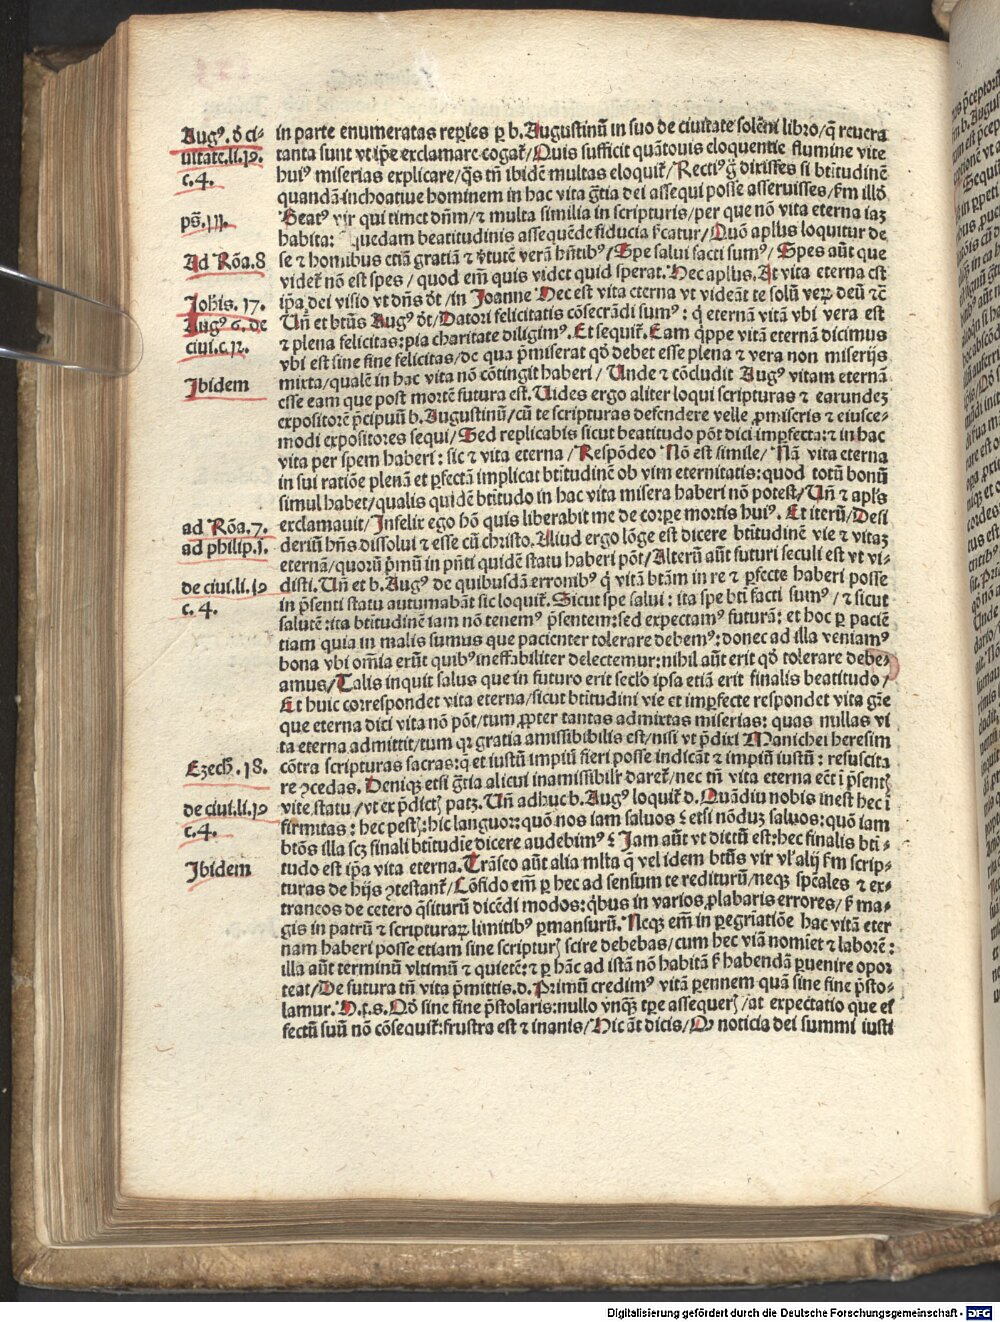 Augꝰ. ð ci-
uitate.li.19.
c.4.
ps̄.111.
Ad Rōa.8
Johīs. 17.
Augꝰ 6. de
ciui.c.12.
Ibidem
ad Rōa.7.
ad philip.1.
de ciui.li.19
c. 4.
Ezech̄.18.
de ciui.li.19
c.4.
Ibidem
in parte enumeratas repies ꝑ b. Augustinū in suo de ciuitate solēni libro/q̄ reuera
tanta sunt vt ip̄e exclamare cogat̄/Quis sufficit quātouis eloquentie flumine vite
huiꝰ miserias explicare/q̄s tn̄ ibidē multas eloquit̄/Rectiꝰ ḡ dixisses si btitudinē
quandā inchoatiue hominem in hac vita gt̄ia dei assequi posse asseruisses/fm illō
Beatꝰ vir qui timet dn̄m/⁊ multa similia in scripturis/per que nō vita eterna iaꝫ
habita: quedam beatitudinis assequēde fiducia f̄catur/Quō apl̄us loquitur de
se ⁊ hominibus etiā gratiā ⁊ v̄tutē verā hn̄tibꝰ/Spe salui facti sumꝰ/ Spes aūt que
videt̄ nō est spes/quod em̄ quis videt quid sperat. Hec apl̄us. At vita eterna est
ip̄a dei visio vt dn̄s ðt/in Joanne Hec est vita eterna vt videāt te solū veꝝ deū ⁊c̄
Un̄ et btūs Augꝰ ðt/Datori felicitatis cōsecrādi sumꝰ: q̄ eternā vitā vbi vera est
⁊ plena felicitas:pia charitate diligimꝰ. Et sequit̄. Eam q̄ppe vitā eternā dicimus
vbi est sine fine felicitas/de qua p̄miserat qō debet esse plena ⁊ vera non miserijs
mixta/qualē in hac vita nō cōtingit haberi/ Unde ⁊ cōcludit Augꝰ vitam eternā
esse eam que post mortē futura est. Uides ergo aliter loqui scripturas ⁊ earundeꝫ
expositorē p̄cipuū b. Augustinū/cū te scripturas defendere velle ꝓmiseris ⁊ eiusce-
modi expositores sequi/Sed replicabis sicut beatitudo pōt dici imꝑfecta:⁊ in hac
vita per spem haberi: sic ⁊ vita eterna/ Respōdeo Nō est simile/ Nā vita eterna
in sui ratiōe plenā et ꝑfectā implicat btitudinē ob vim eternitatis:quod totū bonū
simul habet/qualis quidē btitudo in hac vita misera haberi nō potest/Un̄ ⁊ apl̄s
exclamauit/Infelix ego hō quis liberabit me de corꝑe mortis huiꝰ. Et iterū/Desi
deriū hn̄s dissolui ⁊ esse cū christo. Aliud ergo lōge est dicere btitudinē vie ⁊ vitaꝫ
eternā/quorū p̄mū in p̄nti quidē statu haberi pōt/Alterū aūt futuri seculi est vt vi-
disti. Un̄ et b. Augꝰ de quibusdā erronibꝰ q̄ vitā btām in re ⁊ ꝑfecte haberi posse
in p̄senti statu autumabāt sic loquit̄. Sicut spe salui: ita spe bti facti sumꝰ/ ⁊ sicut
salutē:ita btitudinē iam nō tenemꝰ p̄sentem:sed expectamꝰ futurā: et hoc ꝑ paciē
tiam quia in malis sumus que pacienter tolerare debemꝰ:donec ad illa veniamꝰ
bona vbi om̄ia erūt quibꝰ ineffabiliter delectemur:nihil aūt erit qō tolerare debe-
amus/Talis inquit salus que in futuro erit secl̄o ipsa etiā erit finalis beatitudo/
Et huic correspondet vita eterna/sicut btitudini vie et imꝑfecte respondet vita gr̄e
que eterna dici vita nō pōt/tum ꝓpter tantas admixtas miserias: quas nullas vi
ta eterna admittit/tum qꝛ gratia amissibilis est/nisi vt p̄dixi Manichei heresim
cōtra scripturas sacras:q̄ et iustū impiū fieri posse indicāt ⁊ impiū iustū: resuscita
re ꝯcedas. Deniqꝫ etsi gt̄ia alicui inamissibilr̄ daret̄/nec tn̄ vita eterna eēt ī p̄senti
vite statu/vt ex p̄dictꝭ patꝫ. Un̄ adhuc b. Augꝰ loquit̄ d. Quādiu nobis inest hec ī
firmitas: hec pestꝭ:hic languor:quō nos iam saluos ⁊ etsi nōduꝫ saluos:quō iam
btōs illa scꝫ finali btitudīe dicere audebimꝰ ⁊ Jam aūt vt dictū est:hec finalis bti-
tudo est ip̄a vita eterna. Trāsco aūt alia ml̄ta q̄ vel idem btūs vir vl̄ alij fm scrip-
turas de hijs ꝯtestant̄/Cōfido em̄ ꝑ hec ad sensum te rediturū/neqꝫ spēales ⁊ ex-
traneos de cetero q̄siturū dicēdi modos:q̄bus in varios ꝓlabaris errores/s̄ ma-
gis in patrū ⁊ scripturaꝝ limitibꝰ ꝑmansurū. Neqꝫ em̄ in ꝑegrinatiōe hac vitā eter
nam haberi posse etiam sine scripturꝭ scire debebas/cum hec viā nomīet ⁊ laborē:
illa aūt terminū vltimū ⁊ quietē:⁊ ꝑ hāc ad istā nō habitā s̄ habendā ꝑuenire opor
teat/De futura tn̄ vita p̄mittis.d. Primū credimꝰ vitā ꝑennem quā sine fine p̄sto-
lamur. D.r.s. Qō sine fine p̄stolaris:nullo vnqꝫ tꝑe assequerꝭ/at expectatio que ef
fectū suū nō cōsequit̄:frustra est ⁊ inanis/Hic āt dicis/Qꝫ noticia dei summi iusti
Digitalisierung gefördert durch die Deutsche Forschungsgemeinschaft - DFG